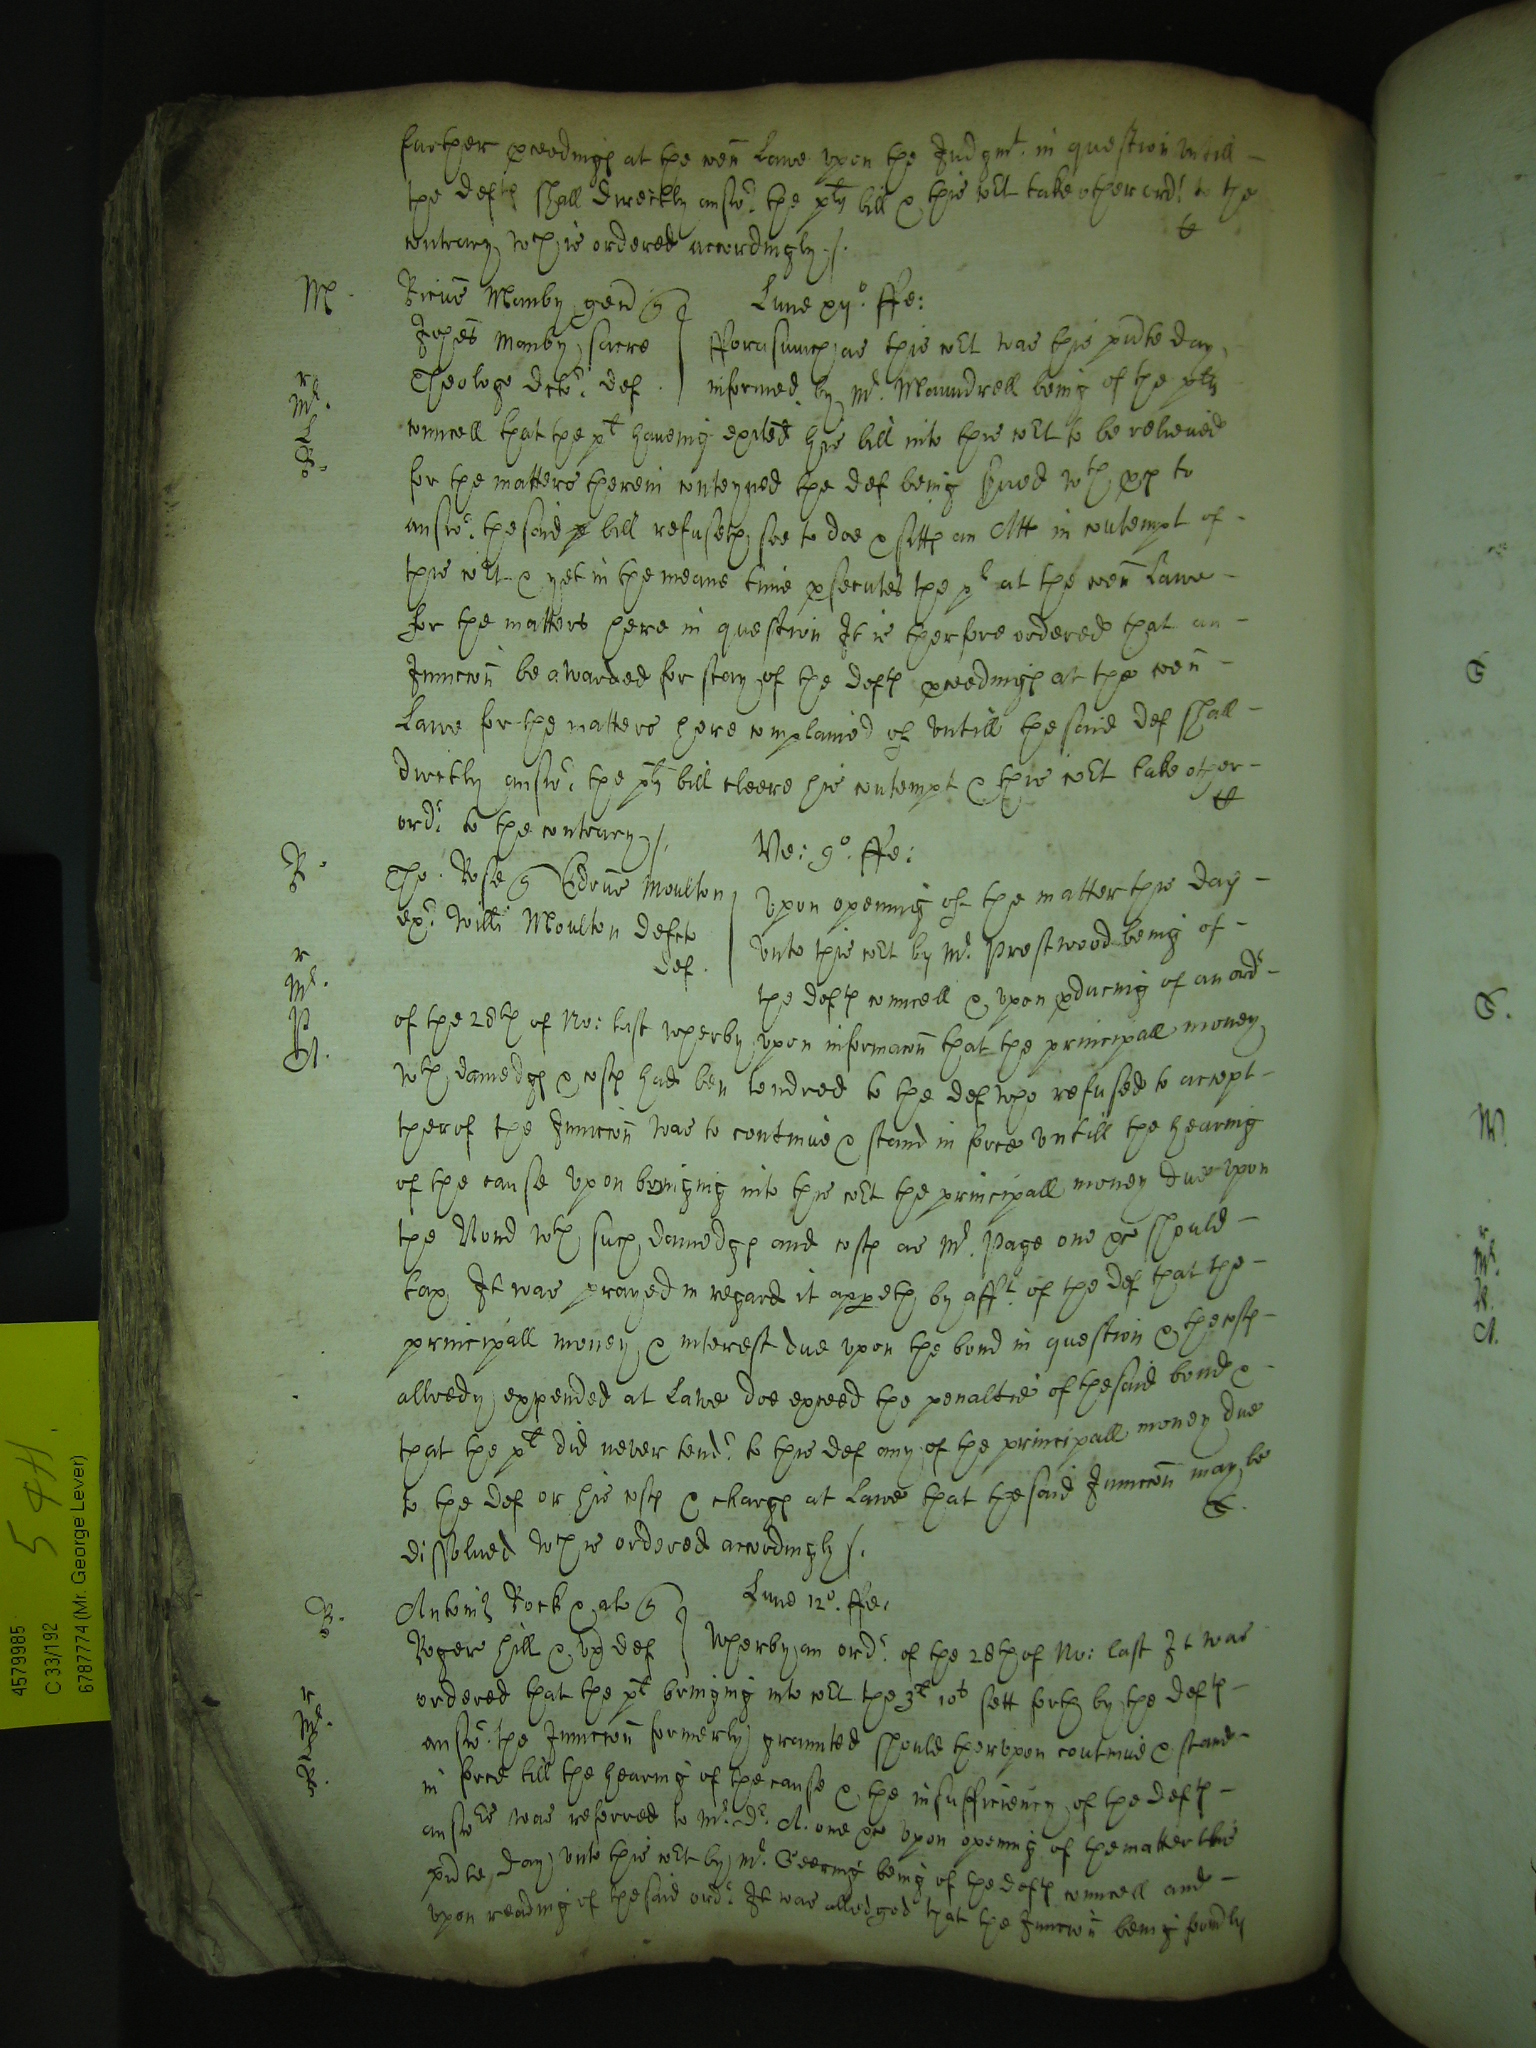 further pceedings at the coen Lawe upon the Judgmt. in question untill
the defts shall directly answr. the plts bill & this cort take other ordr. to the
contrary wch is ordered accordingly /.
M
Ricus Manby gen
Johes Manby sacre
Theologe dcto. def.
Lune xij°. ffe:
fforasmuch as this cort was this pnte day
informed by Mr. Maundrell being of the plts
councell that the plt haveing exited his bill into this cort to be relieved
for the matters therein conteyned the def being served wth pces to
answr. the said bill refuseth soe to doe & sitts an Att in contempt of
this cort & yet in the meane time psecutes the plt at the coen Lawe
for the matters here in question It is therfore ordered that an
Iniuccon be awarded for stay of the defts pceedings at the coen
Lawe for the matters here complained of untill the said def shall
directly answr. the plts bill cleere his contempt & this cort take other
ordr. to the contrary /.
R.
Tho. Rose Edrus Moulton
exr. Willi Moulton defcto
def.
Ve: 9°. ffe:
Upon opening of the matter this day
unto this cort by Mr. Prestwood being of
the defts councell & upon pducing of an ordr
of the 28th of No: last wherby upon informacon that the principall money
wth damedgs & costs had ben tendred to the def who refused to accept
therof the Iniuccon was to continue & stand in force untill the hearing
of the cause upon bringing into this cort the principall money due upon
the Bond wth such damedgs and costs as Mr. Page one &c should
tax It was prayed in regard it appeth by afft. of the def that the
principall money & interest due upon the bond in question & the costs
allredy expended at Lawe doe exceed the penaltie of the said bond &
that the plt did never tendr. to this def any of the principall money due
to the def or his costs & chargs at Lawe that the said Iniuccon may be
dissolved wch is ordered accordingly /.
R.
Antonis Rock & al
Roger Hill & ux def
Lune 12°. ffe:
Wherby an ordr. of the 28th of No: last It was
ordered that the plt bringing into cort the 3l 10s sett forth by the defts
answr. the Iniuccon formerly graunted should therupon continue & stand
in force till the hearing of the cause & the insufficiency of the defts
answers was referred to Mr. Dr. A. one &c upon opening of the matter this
pnte day unto this cort by Mr. Geering being of the defts councell and
upon reading of the said ordr. It was alledged that the Iniuccon being formerly
5 4H.
4579985
C 33/192
6787774 (Mr. George Lever)